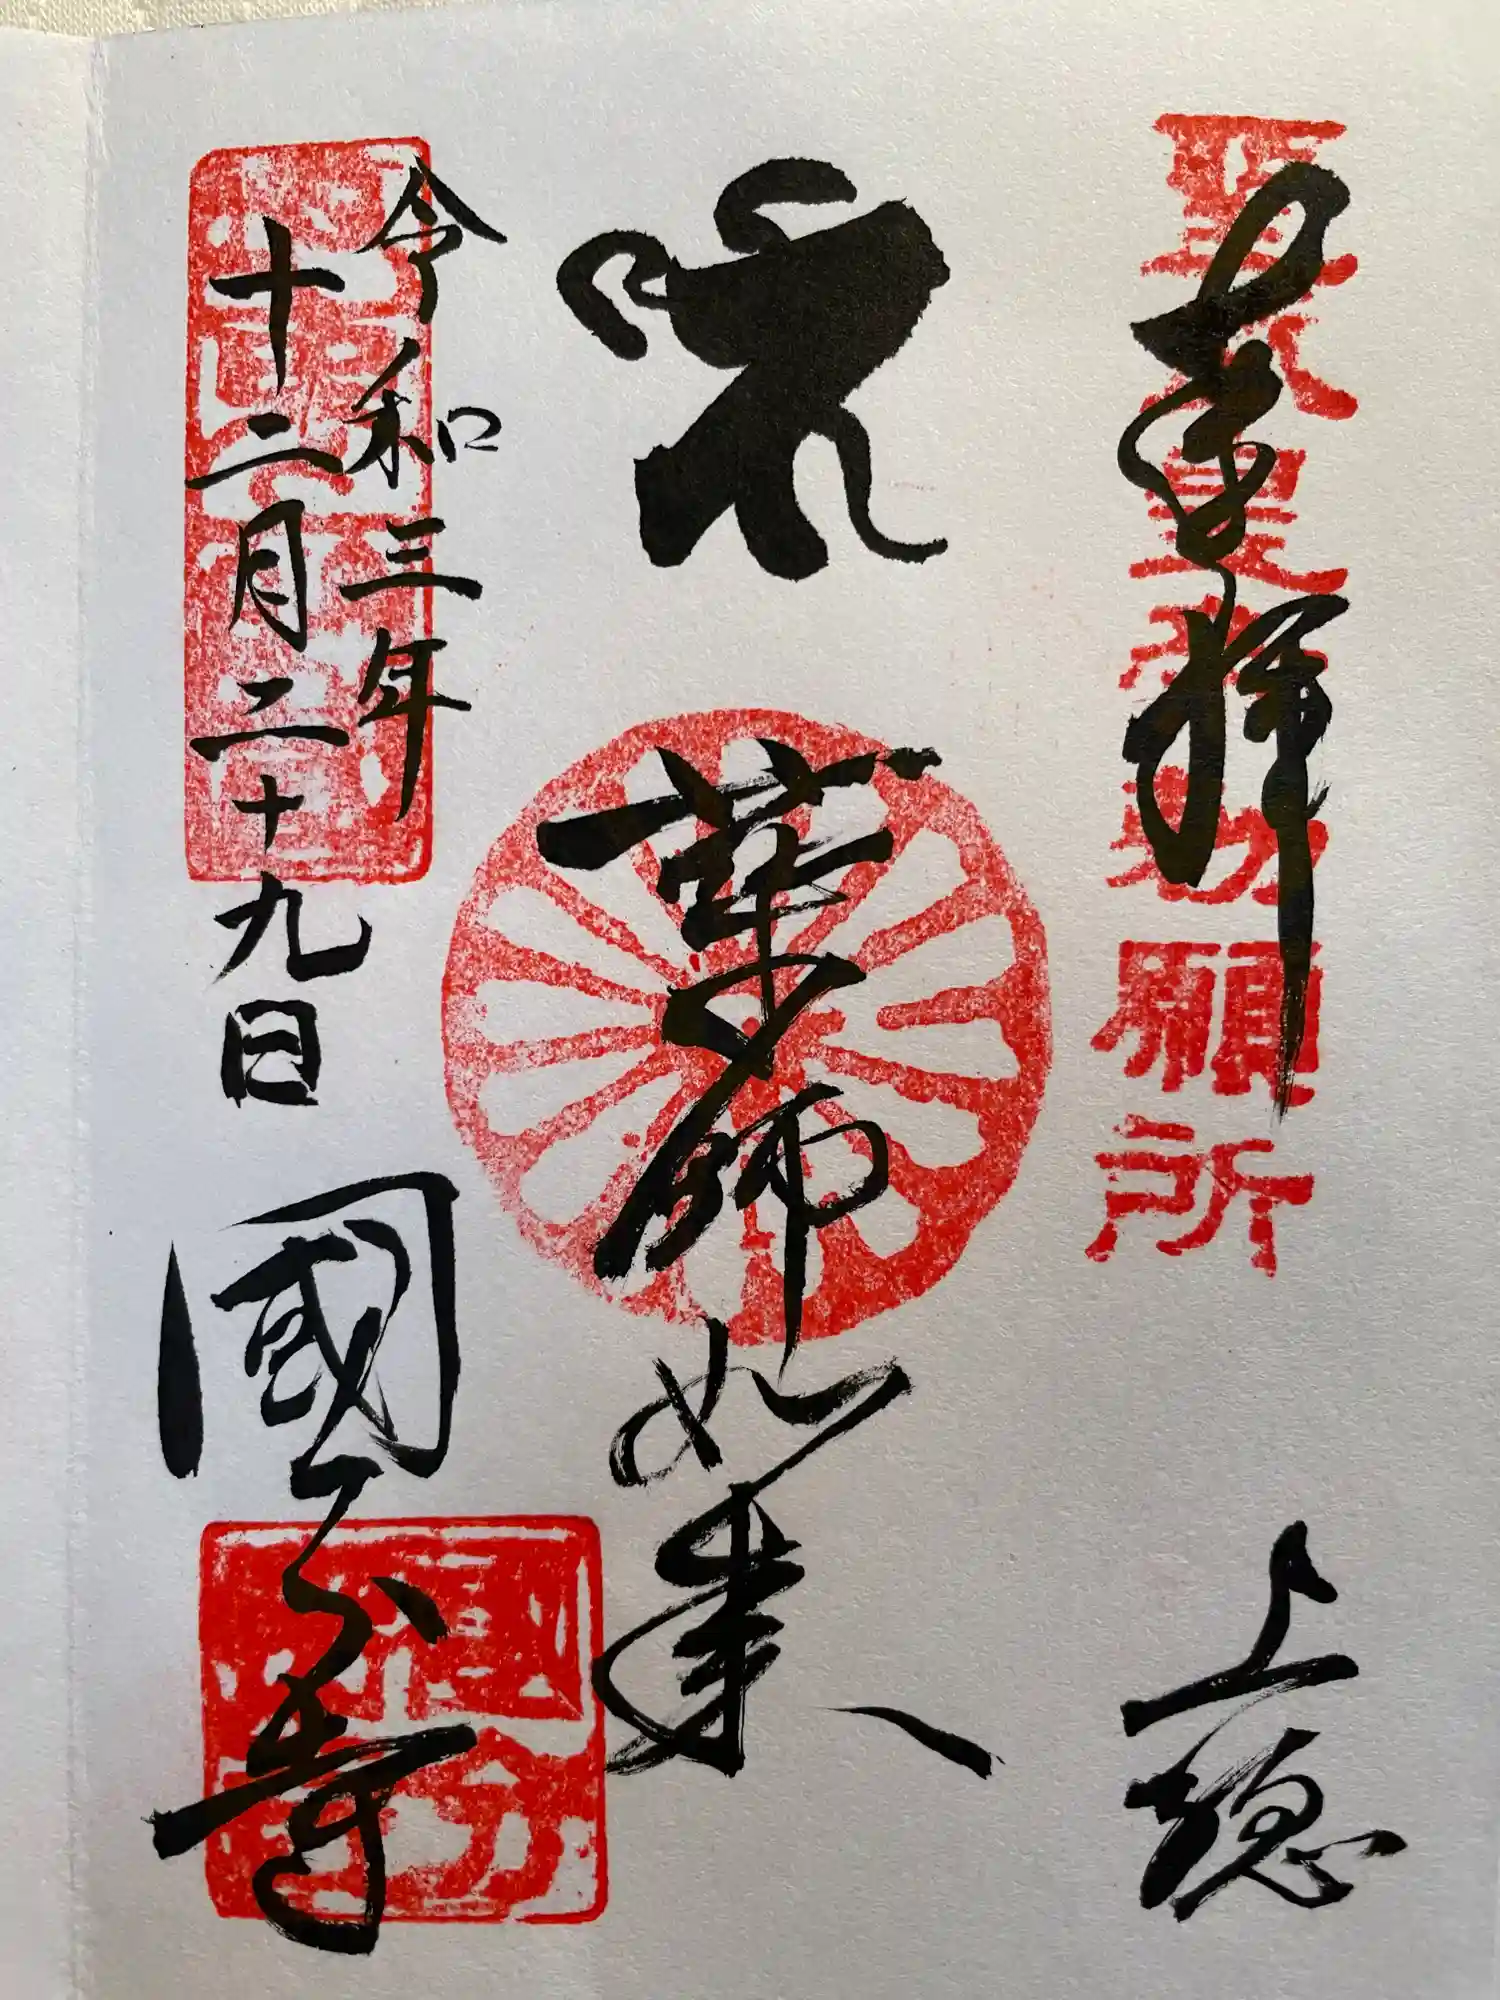 奉拝
上総
聖武天皇勅願所
薬師如来
令和三年
十二月二十九日
國分寺